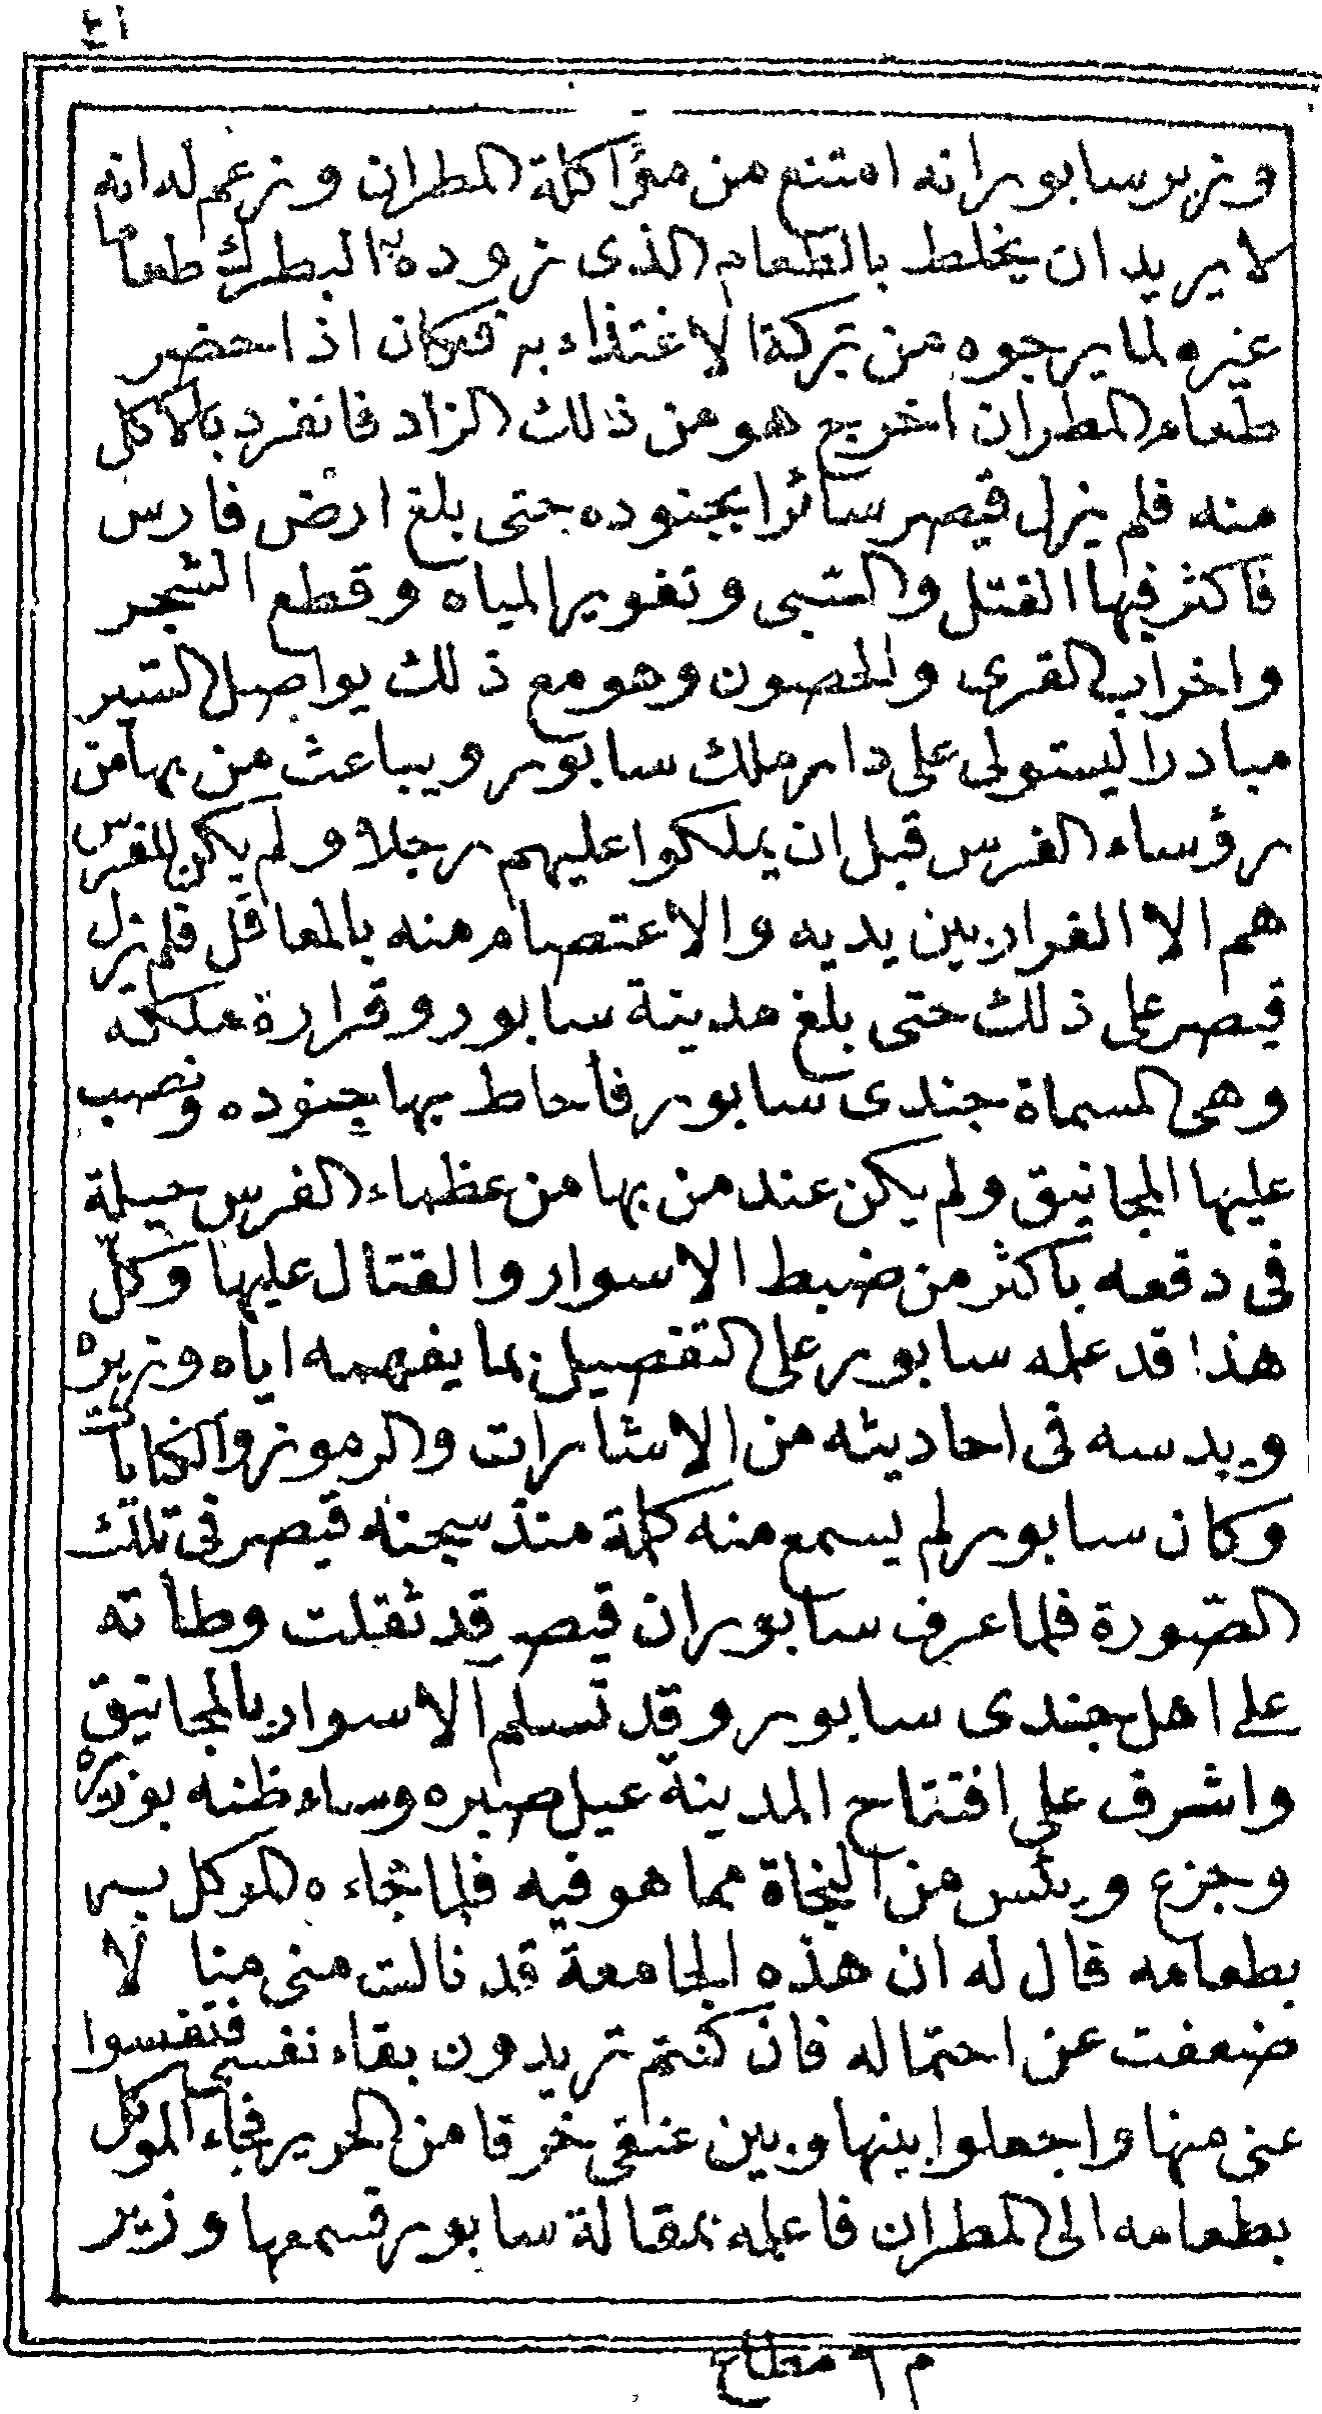 ٤١
وزير سابور انه امتنع من مؤاكلة المطران وزعم له انه
لا يريد ان يخلط بالطعام الذى زوده البطرك طعاما
غيره لما يرجوه من تركة الاغتذاء به فكان اذا حضر
طعام المطران اخرج هو من ذلك الزاد فانفرد بالاكل
منه فلم يزل قيصر سائرا بجنوده حتى بلغ ارض فارس
فاكثر فيها القتل والسبى وتغوير المياه وقطع الشجر
واخراب القرى والحصون وهو مع ذلك يواصل السير
مبادرا ليستولى على دار ملك سابور ويباعث من بها من
رؤساء الفرس قبل ان يملكوا عليهم رجلا ولم يكن للفرس
هم الا الفرار بين يديه والاعتصام منه بالمعاقل فلم يزل
قيصر على ذلك حتى بلغ مدينة سابور وقرارة ملكه
وهى المسماة جندى سابور فأحاط بها جنوده ونصب
عليها المجانيق ولم يكن عند من بها من عظماء الفرس حيلة
فى دفعه باكثر من ضبط الاسوار والقتال عليها وكل
هذا قد علمه سابور على التفصيل بما يفهمه اياه وزيره
ويدسه فى احاديثه من الاشارات والرموز والكنايات
وكان سابور لم يسمع منه كلمة منذ سجنه قيصر فى تلك
الصورة فلما عرف سابور ان قيصر قد ثقلت وطأته
على اهل جندى سابور وقد تسلم الاسوار بالمجانيق
واشرف على افتتاح المدينة عيل صبره وساء ظنه بوزيره
وجزع ويئس من النجاة مما هو فيه فلما جاءه الموكل به
بطعامه قال له ان هذه الجامعة قد نالت منى منا لا
ضعفت عن احتماله فان كنتم تريدون بقاء نفسى فنفسوا
عنى منها واجعلوا بينها وبين عنقى خرقا من الحرير فجاء الموكل
بطعامه الى المطران فاعلمه بمقالة سابور فسمعها وزير
م ٦ مطاع